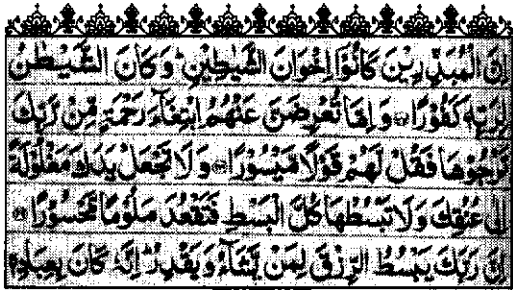 اِنَّ الْمُبَذِّرِیْنَ كَانُوْۤا اِخْوَانَ الشَّیٰطِیْنِ ؕ وَ كَانَ الشَّیْطٰنُ
لِرَبِّهٖ كَفُوْرًا۝ وَ اِمَّا تُعْرِضَنَّ عَنْهُمُ ابْتِغَآءَ رَحْمَةٍ مِّنْ رَّبِّكَ
تَرْجُوْهَا فَقُلْ لَّهُمْ قَوْلًا مَّیْسُوْرًا۝ وَ لَا تَجْعَلْ یَدَكَ مَغْلُوْلَةً
اِلٰی عُنُقِكَ وَ لَا تَبْسُطْهَا كُلَّ الْبَسْطِ فَتَقْعُدَ مَلُوْمًا مَّحْسُوْرًا۝
اِنَّ رَبَّكَ یَبْسُطُ الرِّزْقَ لِمَنْ یَّشَآءُ وَ یَقْدِرُ ؕ اِنَّهٗ كَانَ بِعِبَادِهٖ